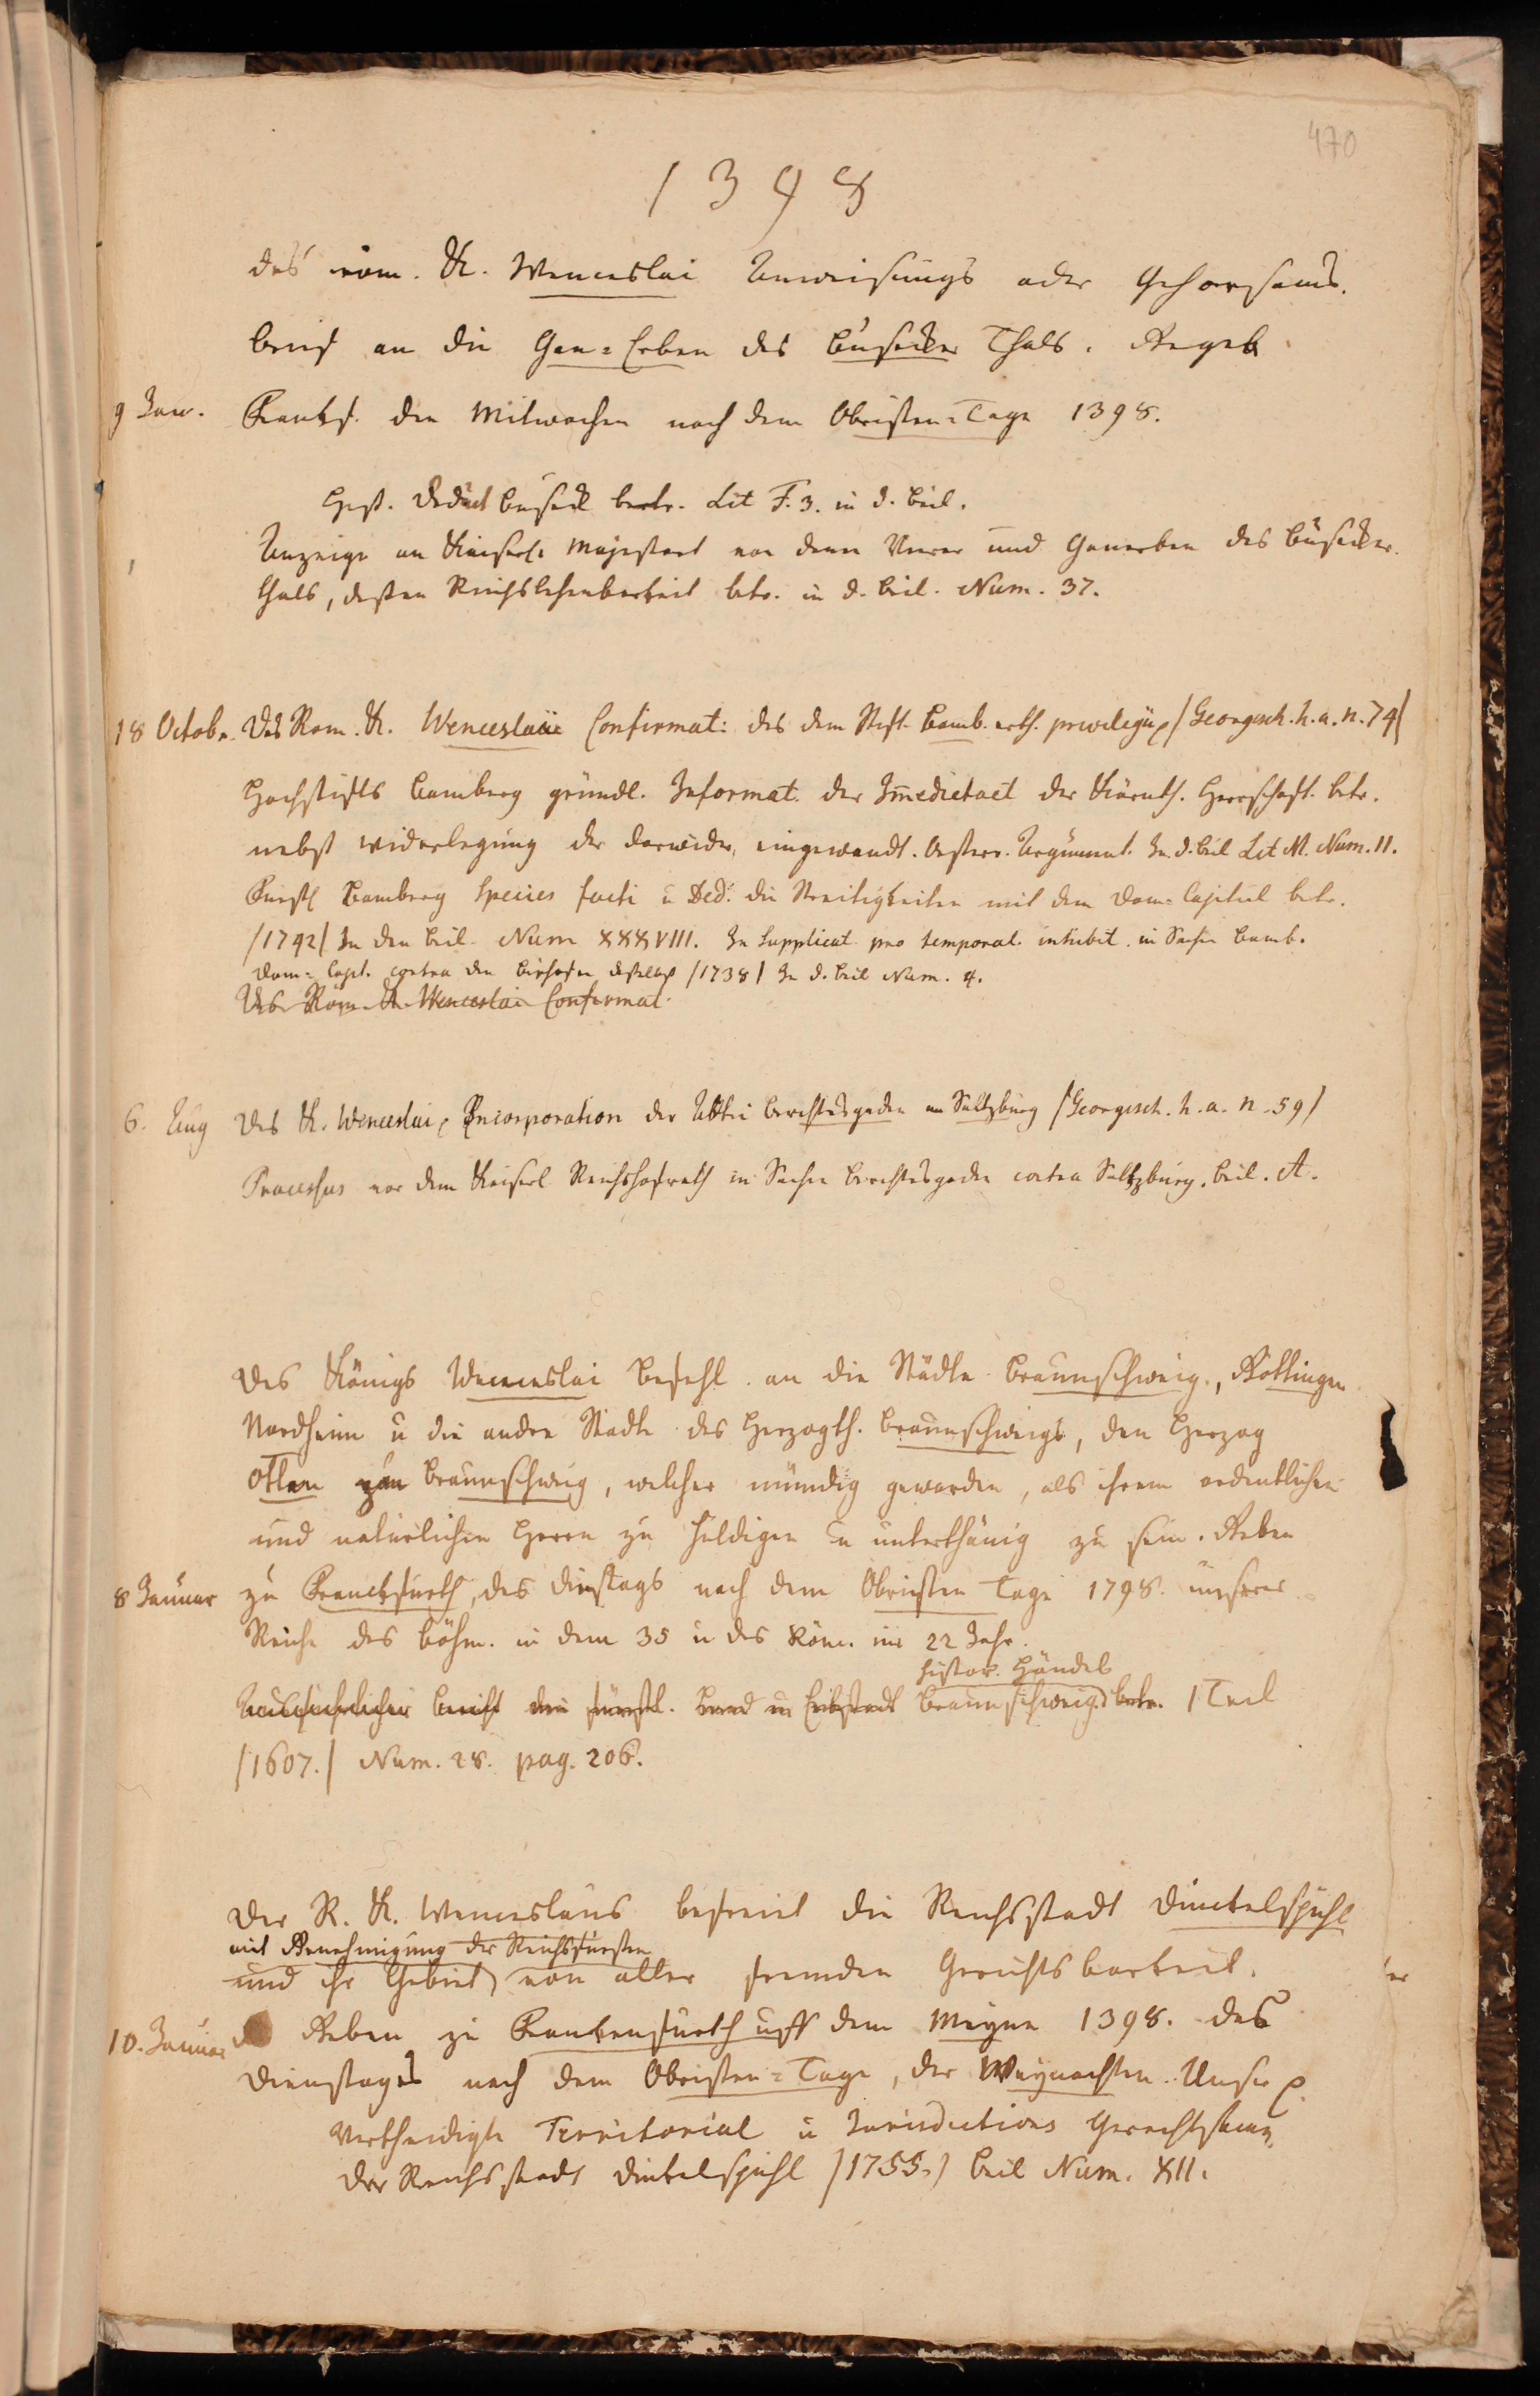 470
1398
des röm. K. Wenceslai Anweisungs oder Gehorsams.
brief an die Gan=Erben des Busecker Thals. Gegeb
9 Jan. Frankf. den Mitwochen nach dem Obristen=Tage 1398.
Heß. Deduct Buseck betr. Lit F. 3. in d. Beil.
Anzeige an Kaiserl. Majestaet von denn Vierer und Ganerben des Busecker.
thals, deßen Reichslehenbarkeit betr. in d. Beil. Num. 37.
18 Octobr. Des Rom. K. Wenceslai Confirmat: des dem Stift Bamb. erth. privilegii /Georgisch. h. a. n. 74/
Hochstifts Bamberg gründl. Informat. der Im̄edietaet der Kärnth. Herrschaft. betr.
nebst widerlegung der darwider eingewandt. Osterr. Argument. In d. Beil Lit M. Num. 11.
Fürstl Bamberg Species facti u Ded: die Streitigkeiten mit dem Dom=Capitul betr.
/1742/ In den Beil. Num XXXVIII. In Supplicat pro temporal. inhibit. in Sachen Bamb.
Dom=Capt. contra den Bischofen daselbst /1738/ In d. Beil Num. 4.
Des Röm. K. Wenceslai Confirmat.
6. Aug Des K. Wenceslai Incorporation der Abtei Berchtesgaden an Saltzburg /Georgisch. h. a. n. 59/
Processus vor dem Kaiserl Reichshofrath in Sachen Berchtesgaden contra Saltzburg. Beil. A.
Des Königs Wenceslai Befehl an die Städte Braunschweig, Göttingen
Nordheim u die andre Stadte des Herzogth. Braunschweigs, den Herzog
Otten zu Braunschweig, welcher mündig geworden, als ihrem ordentlichen
und naturlichen Herrn zu huldigen u unterthänig zu sein. Geben
8 Januar zu Franckfurth, des Dinstags nach dem Obristen Tage 1398. unserer
Reiche des Böhm. in dem 35 u des Röm. im 22 Jahr.
histor. Händel
Ausfuhrlicher Bericht die fürstl. Land u Erbstadt Braunschweig betr. 1 Teil
/1607./ Num. 28. pag. 206.
Der R. K. Wenceslaus befreiet die Reichsstadt Dinckelspühl
mit Genehmigung der Reichsfursten
und ihr Gebiet von aller fremden Gerichtsbarkeit.
10. Januar Geben zu Frankenfurth uff dem Meyne 1398. des
Dienstages nach dem Obristen=Tage, der Weynachten. Unser
Vertheidigte Territorial u Jurisdictions Gerechtsame
der Reichsstadt Dinkelspühl /1755./ Beil Num. XII.